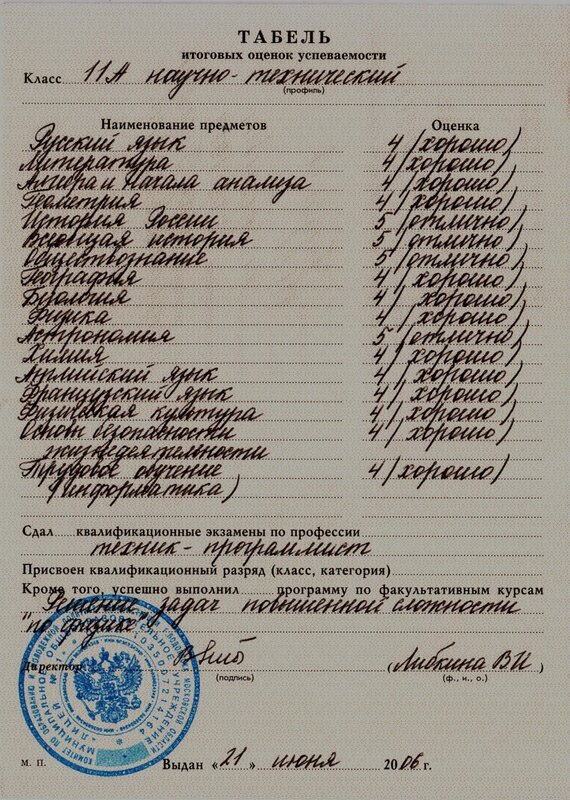 ТАБЕЛЬ
итоговых оценок успеваемости
Класс 11А научно-технический
(профиль)
Наименование предметов Оценка
Русский язык 4 (хорошо)
Литература 4 (хорошо)
Алгебра и начала анализа 4 (хорошо)
Геометрия 4 (хорошо)
История России 5 (отлично)
Всеобщая история 5 (отлично)
Обществознание 5 (отлично)
География 4 (хорошо)
Биология 4 (хорошо)
Физика 4 (хорошо)
Астрономия 5 (отлично)
Химия 4 (хорошо)
Английский язык 4 (хорошо)
Французский язык 4 (хорошо)
Физическая культура 4 (хорошо)
Основы безопасности 4 (хорошо)
жизнедеятельности
Трудовое обучение 4 (хорошо)
(информатика)
Сдал квалификационные экзамены по профессии
техник-программист
Присвоен квалификационный разряд (класс, категория)
Кроме того, успешно выполнил программу по факультативным курсам
"Решение задач повышенной сложности
по физике"
Директор (Либкина В И)
(подпись) (ф., и., о.)
М. П. Выдан «21» июня 2006 г.